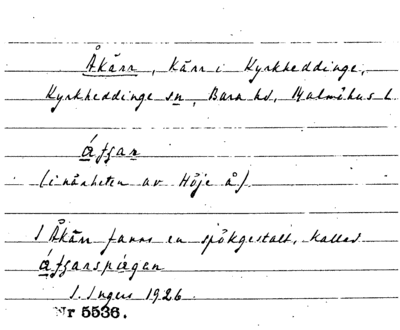 Åkärr, kärr i Kyrkheddinge,
Kyrkheddinge sn, Bara hd, Malmöhus l.
áfʒan
(i närheten av Höje å)
I Åkärr fanns en spökgestalt, kallad
áfʒanspɩgan
I. Ingers 1926
Nr 5536.